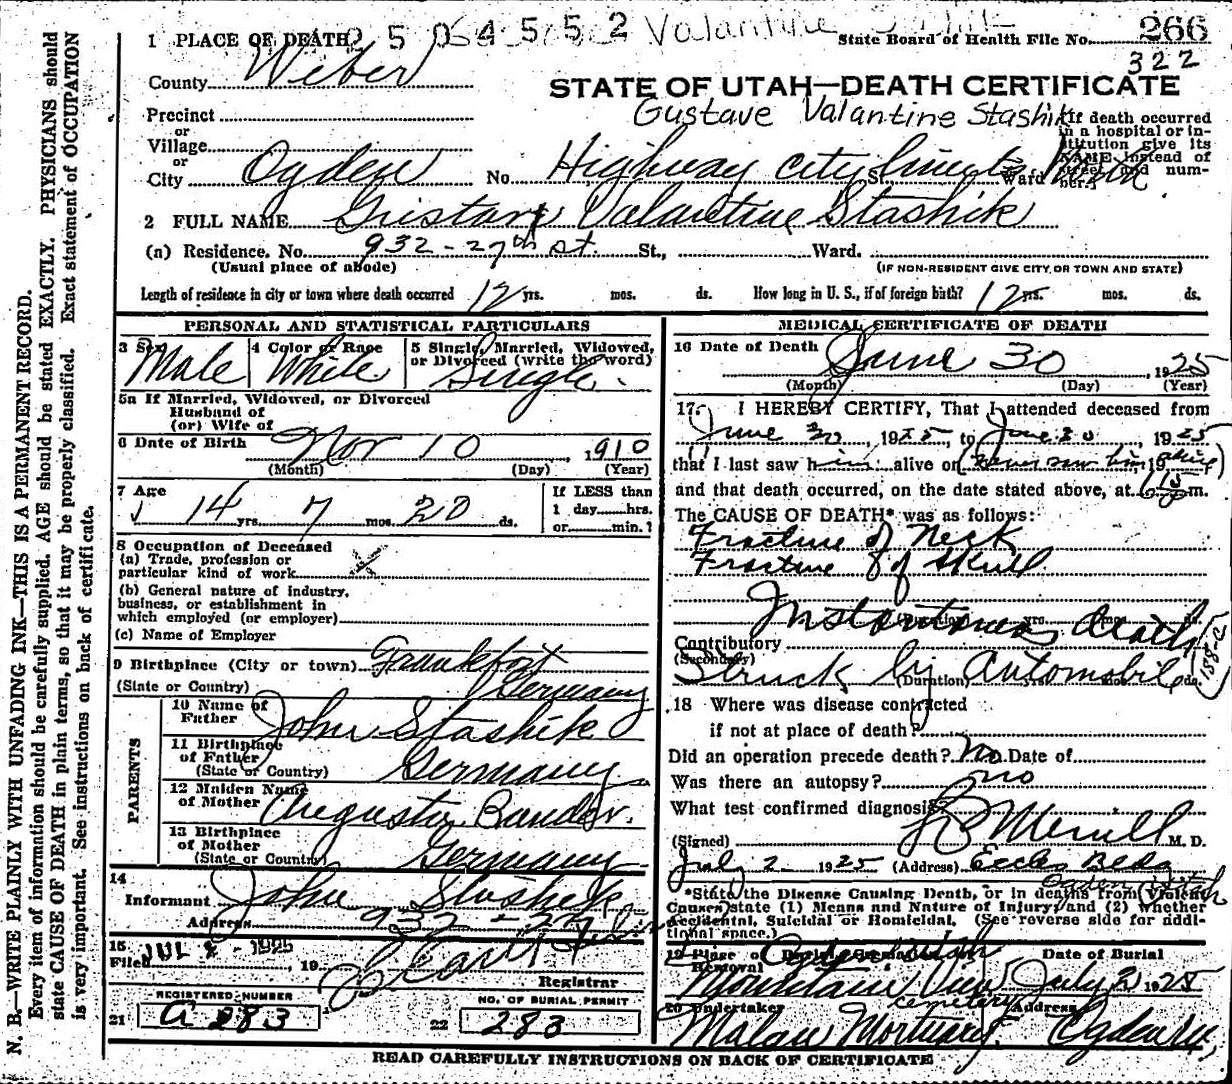 2504552 Valantine
266
322
1 PLACE OF DEATH
State Board of Health File No.
County Weber
STATE OF UTAH—DEATH CERTIFICATE
Gustave Valantine Stashik
Precinct
or
Village
or
City Ogden No Highway city limits St. Ward North
If death occurred in a hospital or institution give its NAME instead of street and number.
2 FULL NAME Gustav Valantine Stashik
(a) Residence. No. 932-27th st. St., Ward.
(Usual place of abode) (IF NON-RESIDENT GIVE CITY, OR TOWN AND STATE)
Length of residence in city or town where death occurred 12 yrs. mos. ds. How long in U. S., if of foreign birth? 12 yrs. mos. ds.
PERSONAL AND STATISTICAL PARTICULARS
3 Sex Male
4 Color or Race White
5 Single, Married, Widowed, or Divorced (write the word) Single.
5a If Married, Widowed, or Divorced
Husband of
(or) Wife of
6 Date of Birth Nov 10, 1910
(Month) (Day) (Year)
7 Age 14 yrs. 7 mos. 20 ds.
If LESS than
1 day hrs.
or min.?
8 Occupation of Deceased
(a) Trade, profession or
particular kind of work
(b) General nature of industry,
business, or establishment in
which employed (or employer)
(c) Name of Employer
9 Birthplace (City or town) Frankfort
(State or Country) Germany
PARENTS
10 Name of Father John Stashik
11 Birthplace of Father
(State or Country) Germany
12 Maiden Name of Mother Augusta
13 Birthplace of Mother
(State or Country) Germany
14
Informant John Stashik
Address 932 - 27
15 JUL 2 1925
Filed , 19
Registrar
REGISTERED NUMBER
21 a 283
NO. OF BURIAL PERMIT
22 283
MEDICAL CERTIFICATE OF DEATH
16 Date of Death June 30, 1925
(Month) (Day) (Year)
17. I HEREBY CERTIFY, That I attended deceased from
June 30, 1925, to June 30, 1925
that I last saw him alive on (never saw him alive) 19
and that death occurred, on the date stated above, at m.
The CAUSE OF DEATH* was as follows:
Fracture of Neck
Fracture of Skull
Instantaneous death
(Duration) yrs. mos. ds.
Contributory
(Secondary)
Struck by Automobile
(Duration) yrs. mos. ds.
18 Where was disease contracted
if not at place of death?
Did an operation precede death? No Date of
Was there an autopsy? no
What test confirmed diagnosis?
(Signed) Merrill M. D.
July 2 1925 (Address) Eccles Bldg
Ogden Utah
*State the Disease Causing Death, or in deaths from Violent
Causes state (1) Means and Nature of Injury; and (2) whether
Accidental, Suicidal or Homicidal. (See reverse side for additional space.)
19 Place of Burial, Cremation or Removal Ogden Utah
Mountain View cemetery
Date of Burial
July 2, 1925
20 Undertaker Address
Malan Mortuary. Ogden
READ CAREFULLY INSTRUCTIONS ON BACK OF CERTIFICATE
N. B.—WRITE PLAINLY WITH UNFADING INK—THIS IS A PERMANENT RECORD.
Every item of information should be carefully supplied. AGE should be stated EXACTLY. PHYSICIANS should
state CAUSE OF DEATH in plain terms, so that it may be properly classified. Exact statement of OCCUPATION
is very important. See instructions on back of certificate.